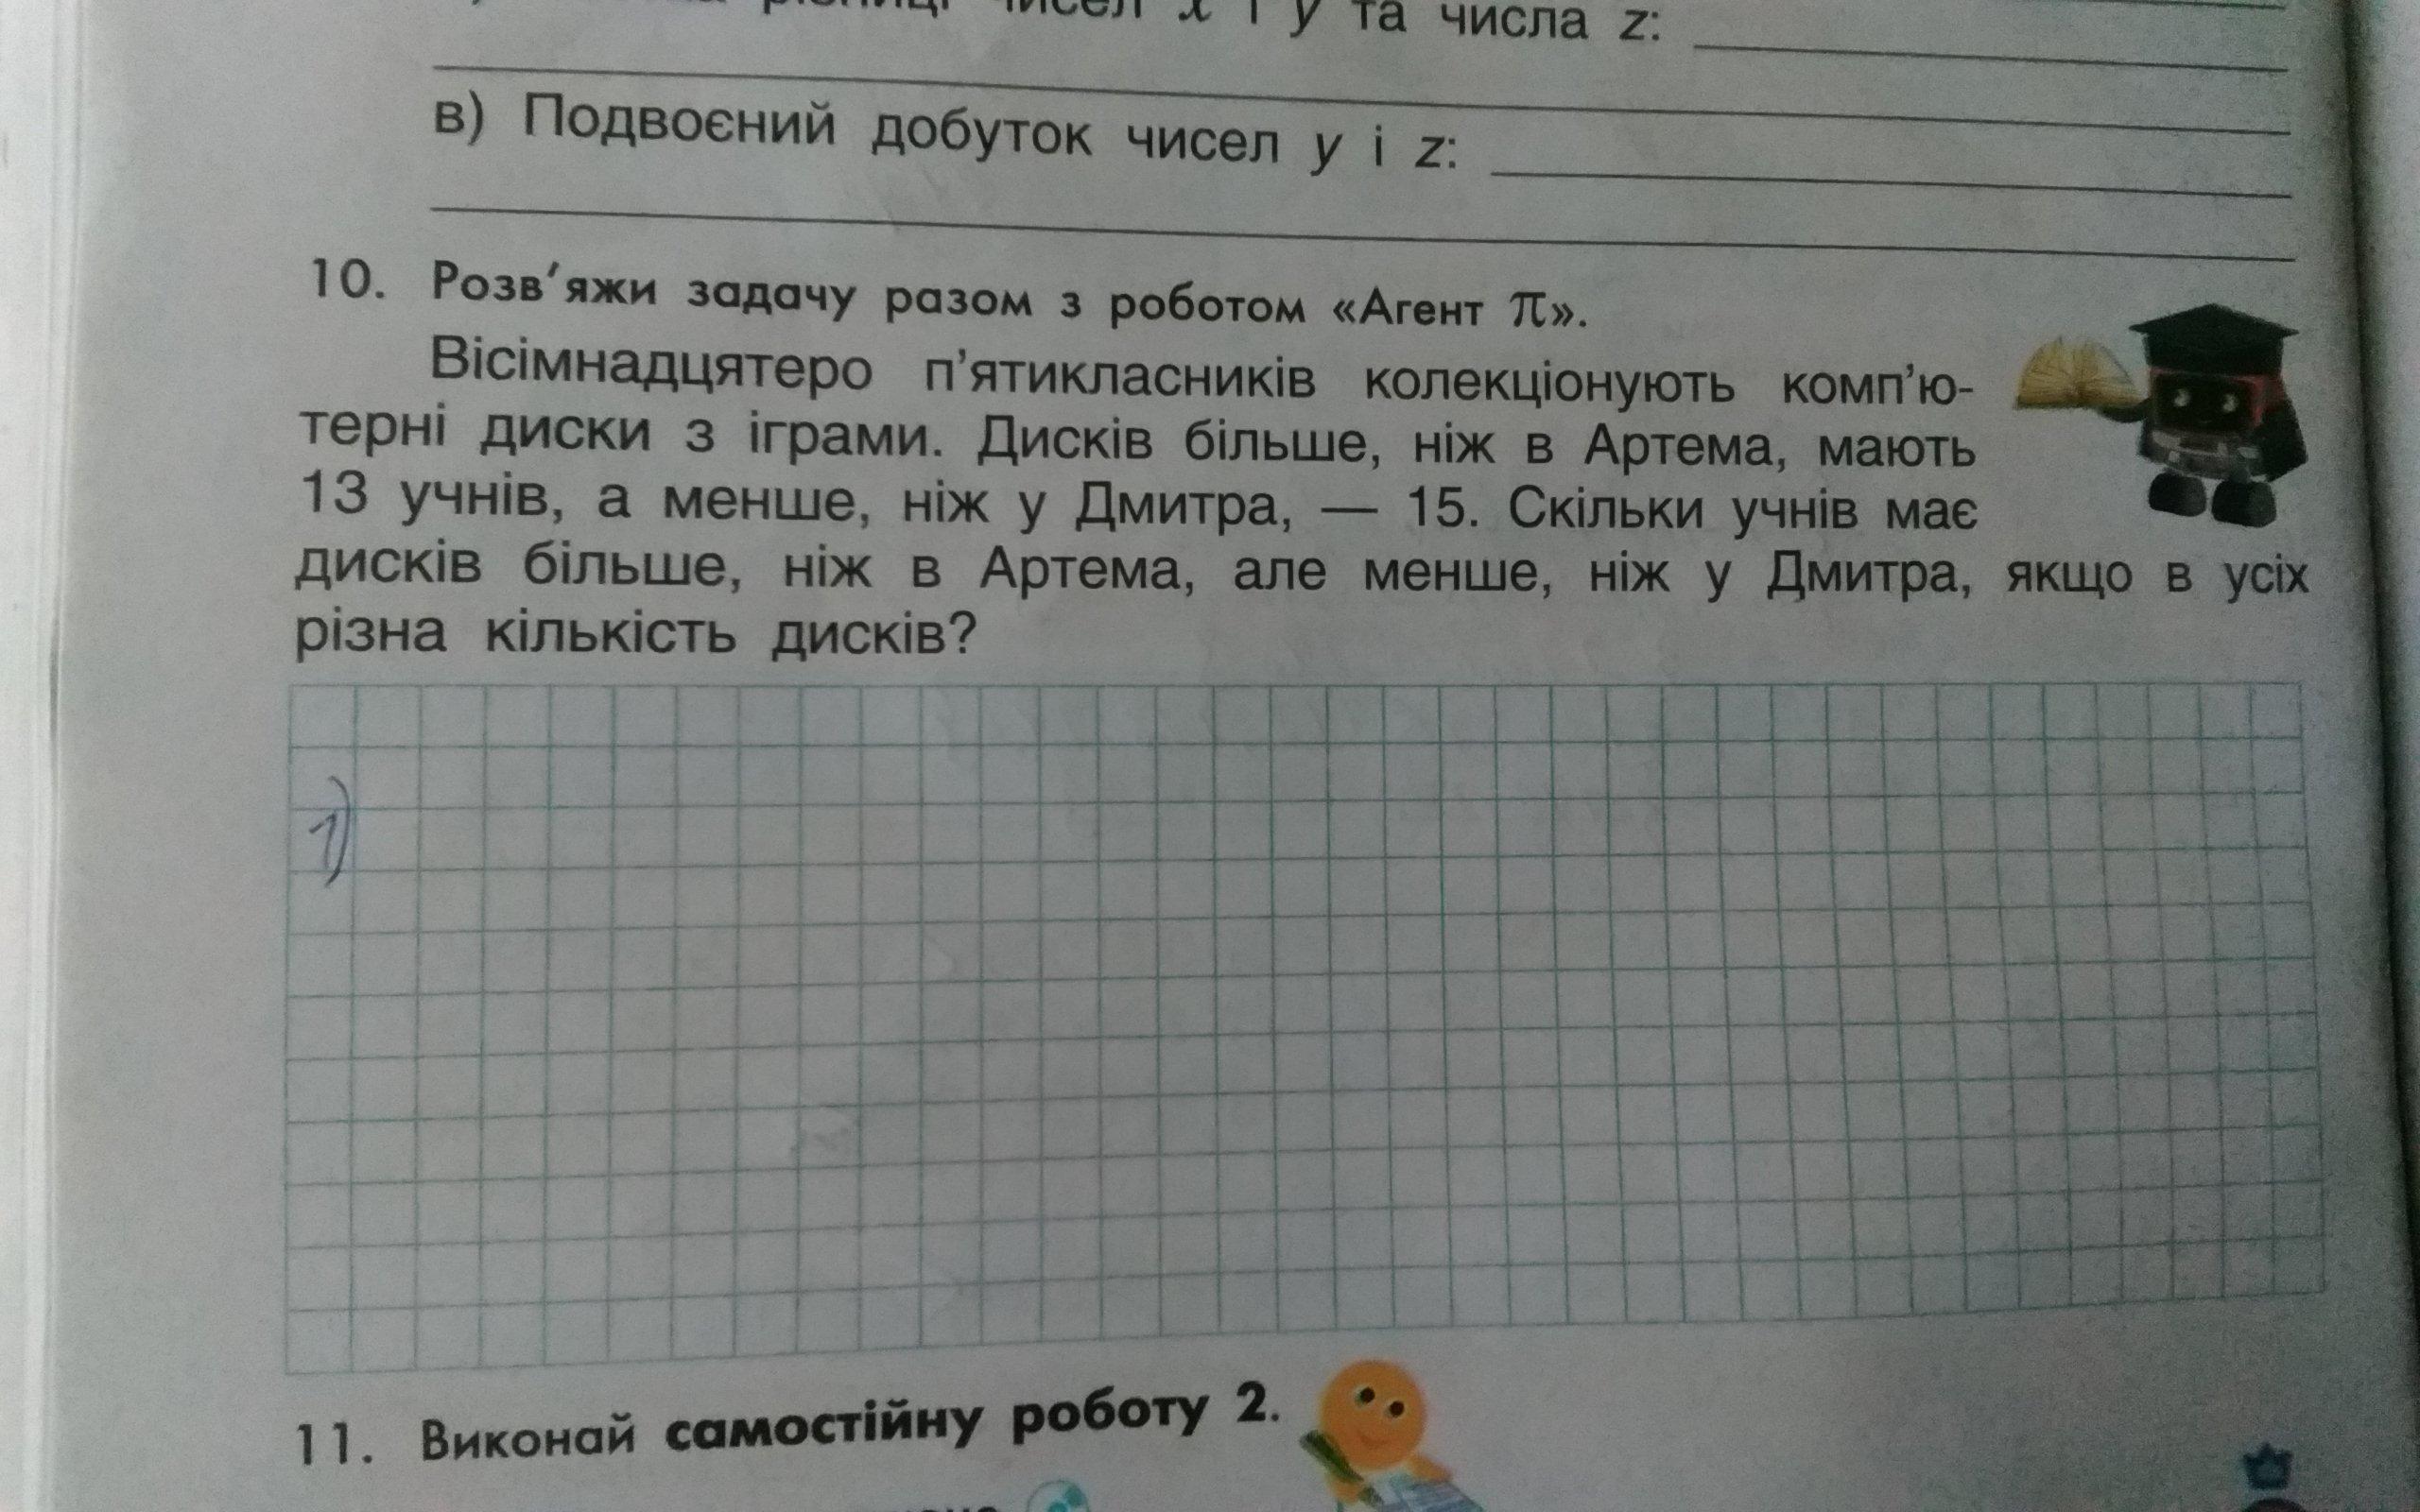 чисел x і y та числа z:
в) Подвоєний добуток чисел y і z:
10. Розв'яжи задачу разом з роботом «Агент π».
Вісімнадцятеро п'ятикласників колекціонують комп'ю-
терні диски з іграми. Дисків більше, ніж в Артема, мають
13 учнів, а менше, ніж у Дмитра, — 15. Скільки учнів має
дисків більше, ніж в Артема, але менше, ніж у Дмитра, якщо в усіх
різна кількість дисків?
1)
11. Виконай самостійну роботу 2.